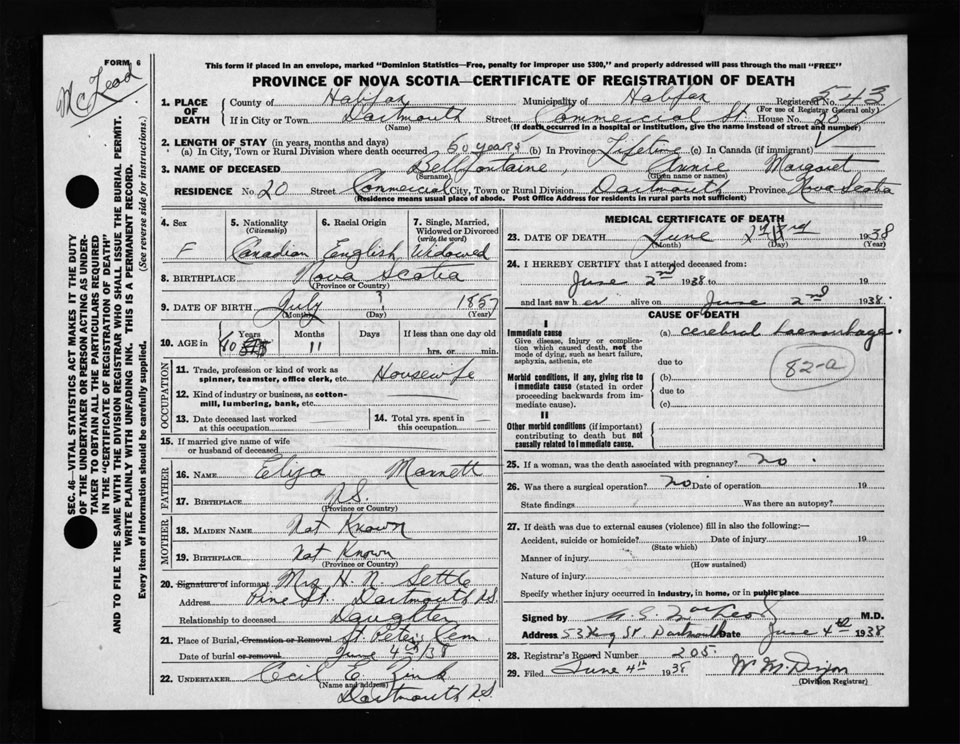 FORM 6
McLeod
This form if placed in an envelope, marked "Dominion Statistics—Free, penalty for improper use $300," and properly addressed will pass through the mail "FREE"
PROVINCE OF NOVA SCOTIA—CERTIFICATE OF REGISTRATION OF DEATH
1. PLACE OF DEATH County of Halifax Municipality of Halifax Registered No. 543
(For use of Registrar General only)
If in City or Town Dartmouth Street Commercial St. House No. 20
(Name) (If death occurred in a hospital or institution, give the name instead of street and number)
2. LENGTH OF STAY (in years, months and days)
(a) In City, Town or Rural Division where death occurred 60 years (b) In Province Lifetime (c) In Canada (if immigrant)
3. NAME OF DECEASED Bellfontaine, Annie Margaret
(Surname) (Given name or names)
RESIDENCE No. 20 Street Commercial City, Town or Rural Division Dartmouth Province Nova Scotia
(Residence means usual place of abode. Post Office Address for residents in rural parts not sufficient)
4. Sex 5. Nationality 6. Racial Origin 7. Single, Married, Widowed or Divorced
(Citizenship) (write the word)
F Canadian English Widowed
8. BIRTHPLACE Nova Scotia
(Province or Country)
9. DATE OF BIRTH July 1857
(Month) (Day) (Year)
10. AGE in Years Months Days If less than one day old
11 hrs. or min.
OCCUPATION
11. Trade, profession or kind of work as spinner, teamster, office clerk, etc. Housewife
12. Kind of industry or business, as cotton-mill, lumbering, bank, etc.
13. Date deceased last worked at this occupation 14. Total yrs. spent in this occupation
15. If married give name of wife or husband of deceased
FATHER
16. NAME Marrett
17. BIRTHPLACE N.S.
(Province or Country)
MOTHER
18. MAIDEN NAME Not Known
19. BIRTHPLACE Not Known
(Province or Country)
20. Signature of informant Mrs H. N. Settle
Address Pine St. Dartmouth N.S.
Relationship to deceased Daughter
21. Place of Burial, Cremation or Removal St. Peter's Cem
Date of burial or removal June 4th/38
22. UNDERTAKER Cecil E. Zink
(Name and address) Dartmouth N.S.
MEDICAL CERTIFICATE OF DEATH
23. DATE OF DEATH June 1938
(Month) (Day) (Year)
24. I HEREBY CERTIFY that I attended deceased from:
June 2nd 1938 to 19
and last saw her alive on June 2nd 1938.
CAUSE OF DEATH
I
Immediate cause (a) cerebral haemorrhage.
Give disease, injury or complication which caused death, not the mode of dying, such as heart failure, asphyxia, asthenia, etc
due to
82-a
Morbid conditions, if any, giving rise to immediate cause (stated in order proceeding backwards from immediate cause). (b)
due to
(c)
II
Other morbid conditions (if important) contributing to death but not causally related to immediate cause.
25. If a woman, was the death associated with pregnancy? no.
26. Was there a surgical operation? no Date of operation 19
State findings Was there an autopsy?
27. If death was due to external causes (violence) fill in also the following:—
Accident, suicide or homicide? Date of injury 19
(State which)
Manner of injury
(How sustained)
Nature of injury
Specify whether injury occurred in industry, in home, or in public place
Signed by M.D.
Address 53 King St Dartmouth Date June 4th 1938
28. Registrar's Record Number 205.
29. Filed June 4th 1938
(Division Registrar)
SEC. 46—VITAL STATISTICS ACT MAKES IT THE DUTY
OF THE UNDERTAKER OR PERSON ACTING AS UNDER-
TAKER TO OBTAIN ALL THE PARTICULARS REQUIRED
IN THE "CERTIFICATE OF REGISTRATION OF DEATH"
AND TO FILE THE SAME WITH THE DIVISION REGISTRAR WHO SHALL ISSUE THE BURIAL PERMIT.
WRITE PLAINLY WITH UNFADING INK. THIS IS A PERMANENT RECORD.
Every item of information should be carefully supplied. (See reverse side for instructions.)